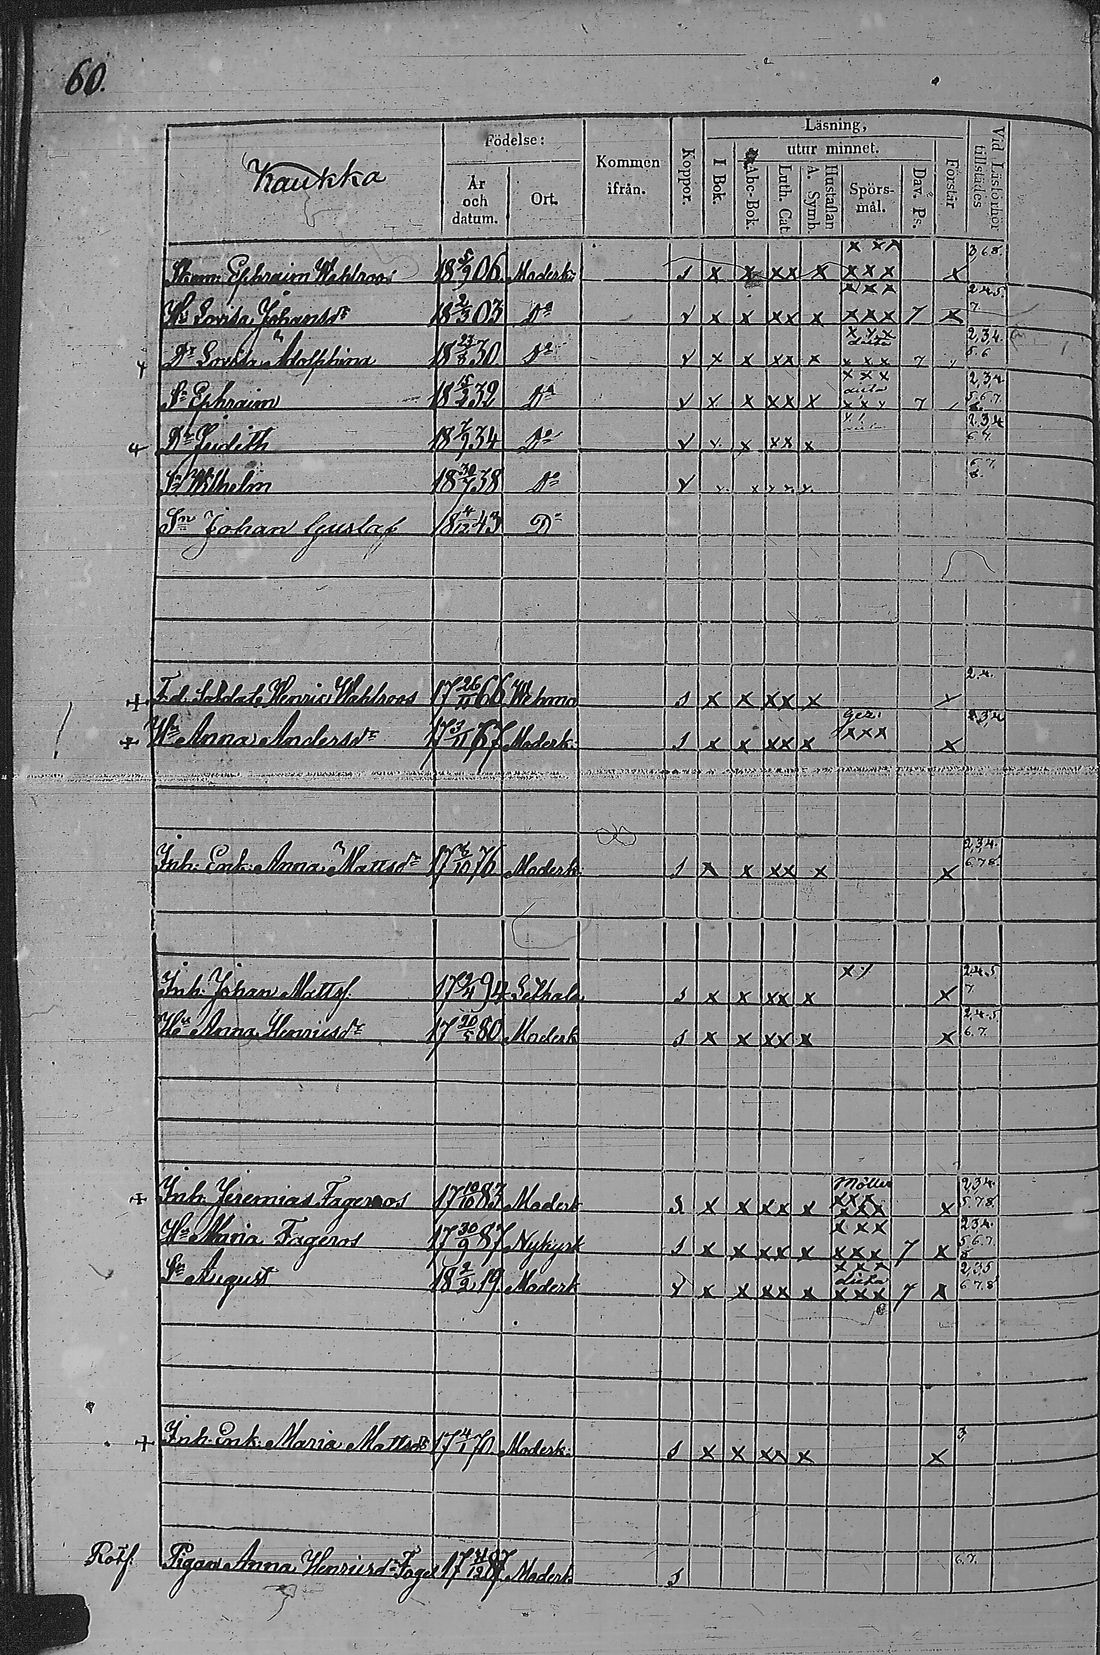 60.
Kaukka
Födelse:
År och datum.
Ort.
Kommen ifrån.
Koppor.
Läsning,
I Bok.
utur minnet.
Abc-Bok.
Luth. Cat.
Hustaflan A. Symb.
Spörs-mål.
Dav. Ps.
Förstår
Vid Läsförhör tillstädes
Ephraim Wahlroos 18 5/9 06 Moderk. s x x xx x xxx x 3,6,8.
Hu Lovisa Johansdr 18 2/3 03 Do v x x xx x xxx 7 x 2.4.5. 7.
Dr Lovisa Adolphina 18 23/2 30 Do v x x xx x xxx 7 2,3,4. 5.6
Sn Ephraim 18 32 Do v x x xx x xxx 7 2,3,4 5.6.7.
Dr Judith 18 34 Do v x x xx x 2.3,4 6.7.
Sn Wilhelm 18 30/7 38 Do v 6.7. 8.
Sn Johan Gustaf 18 4/12 43 Do
Fd. Soldat Henric Wahlroos 17 26/11 66 Wehmo s x x xx x x 2.4.
Hu Anna Andersdr 17 3/11 67 Moderk. s x x xx x xxx x
Inh. Enk. Anna Mattsdr 17 /10 76 Moderk. s x x xx x x 2,3,4. 6.7.8.
Inh. Johan Matts. 17 94 Lethala s x x xx x x 2.4.5 7
Hu Anna Henricsdr 17 20/5 80 Moderk s x x xx x x 2.4.5 6.7.
Inh. Jeremias Fageroos 17 10/10 83 Moderk x x xx x xxx x 2,3,4. 5.7.8.
Hu Maria Fageros 17 30/9 87 Nykyrk s x x xx x xxx 7 x 2.3.4. 5.6.7. 8
Sn August 18 2/2 19. Moderk v x x xx x xxx 7 x 2,3,5 6.7.8
Inh. Enk. Maria Mattsdr 17 4/1 70 Moderk. s x x xx x x 3,
Rotf. Pigan Anna Henricsdr Fagel 17 /12 87 Moderk s 6.7.